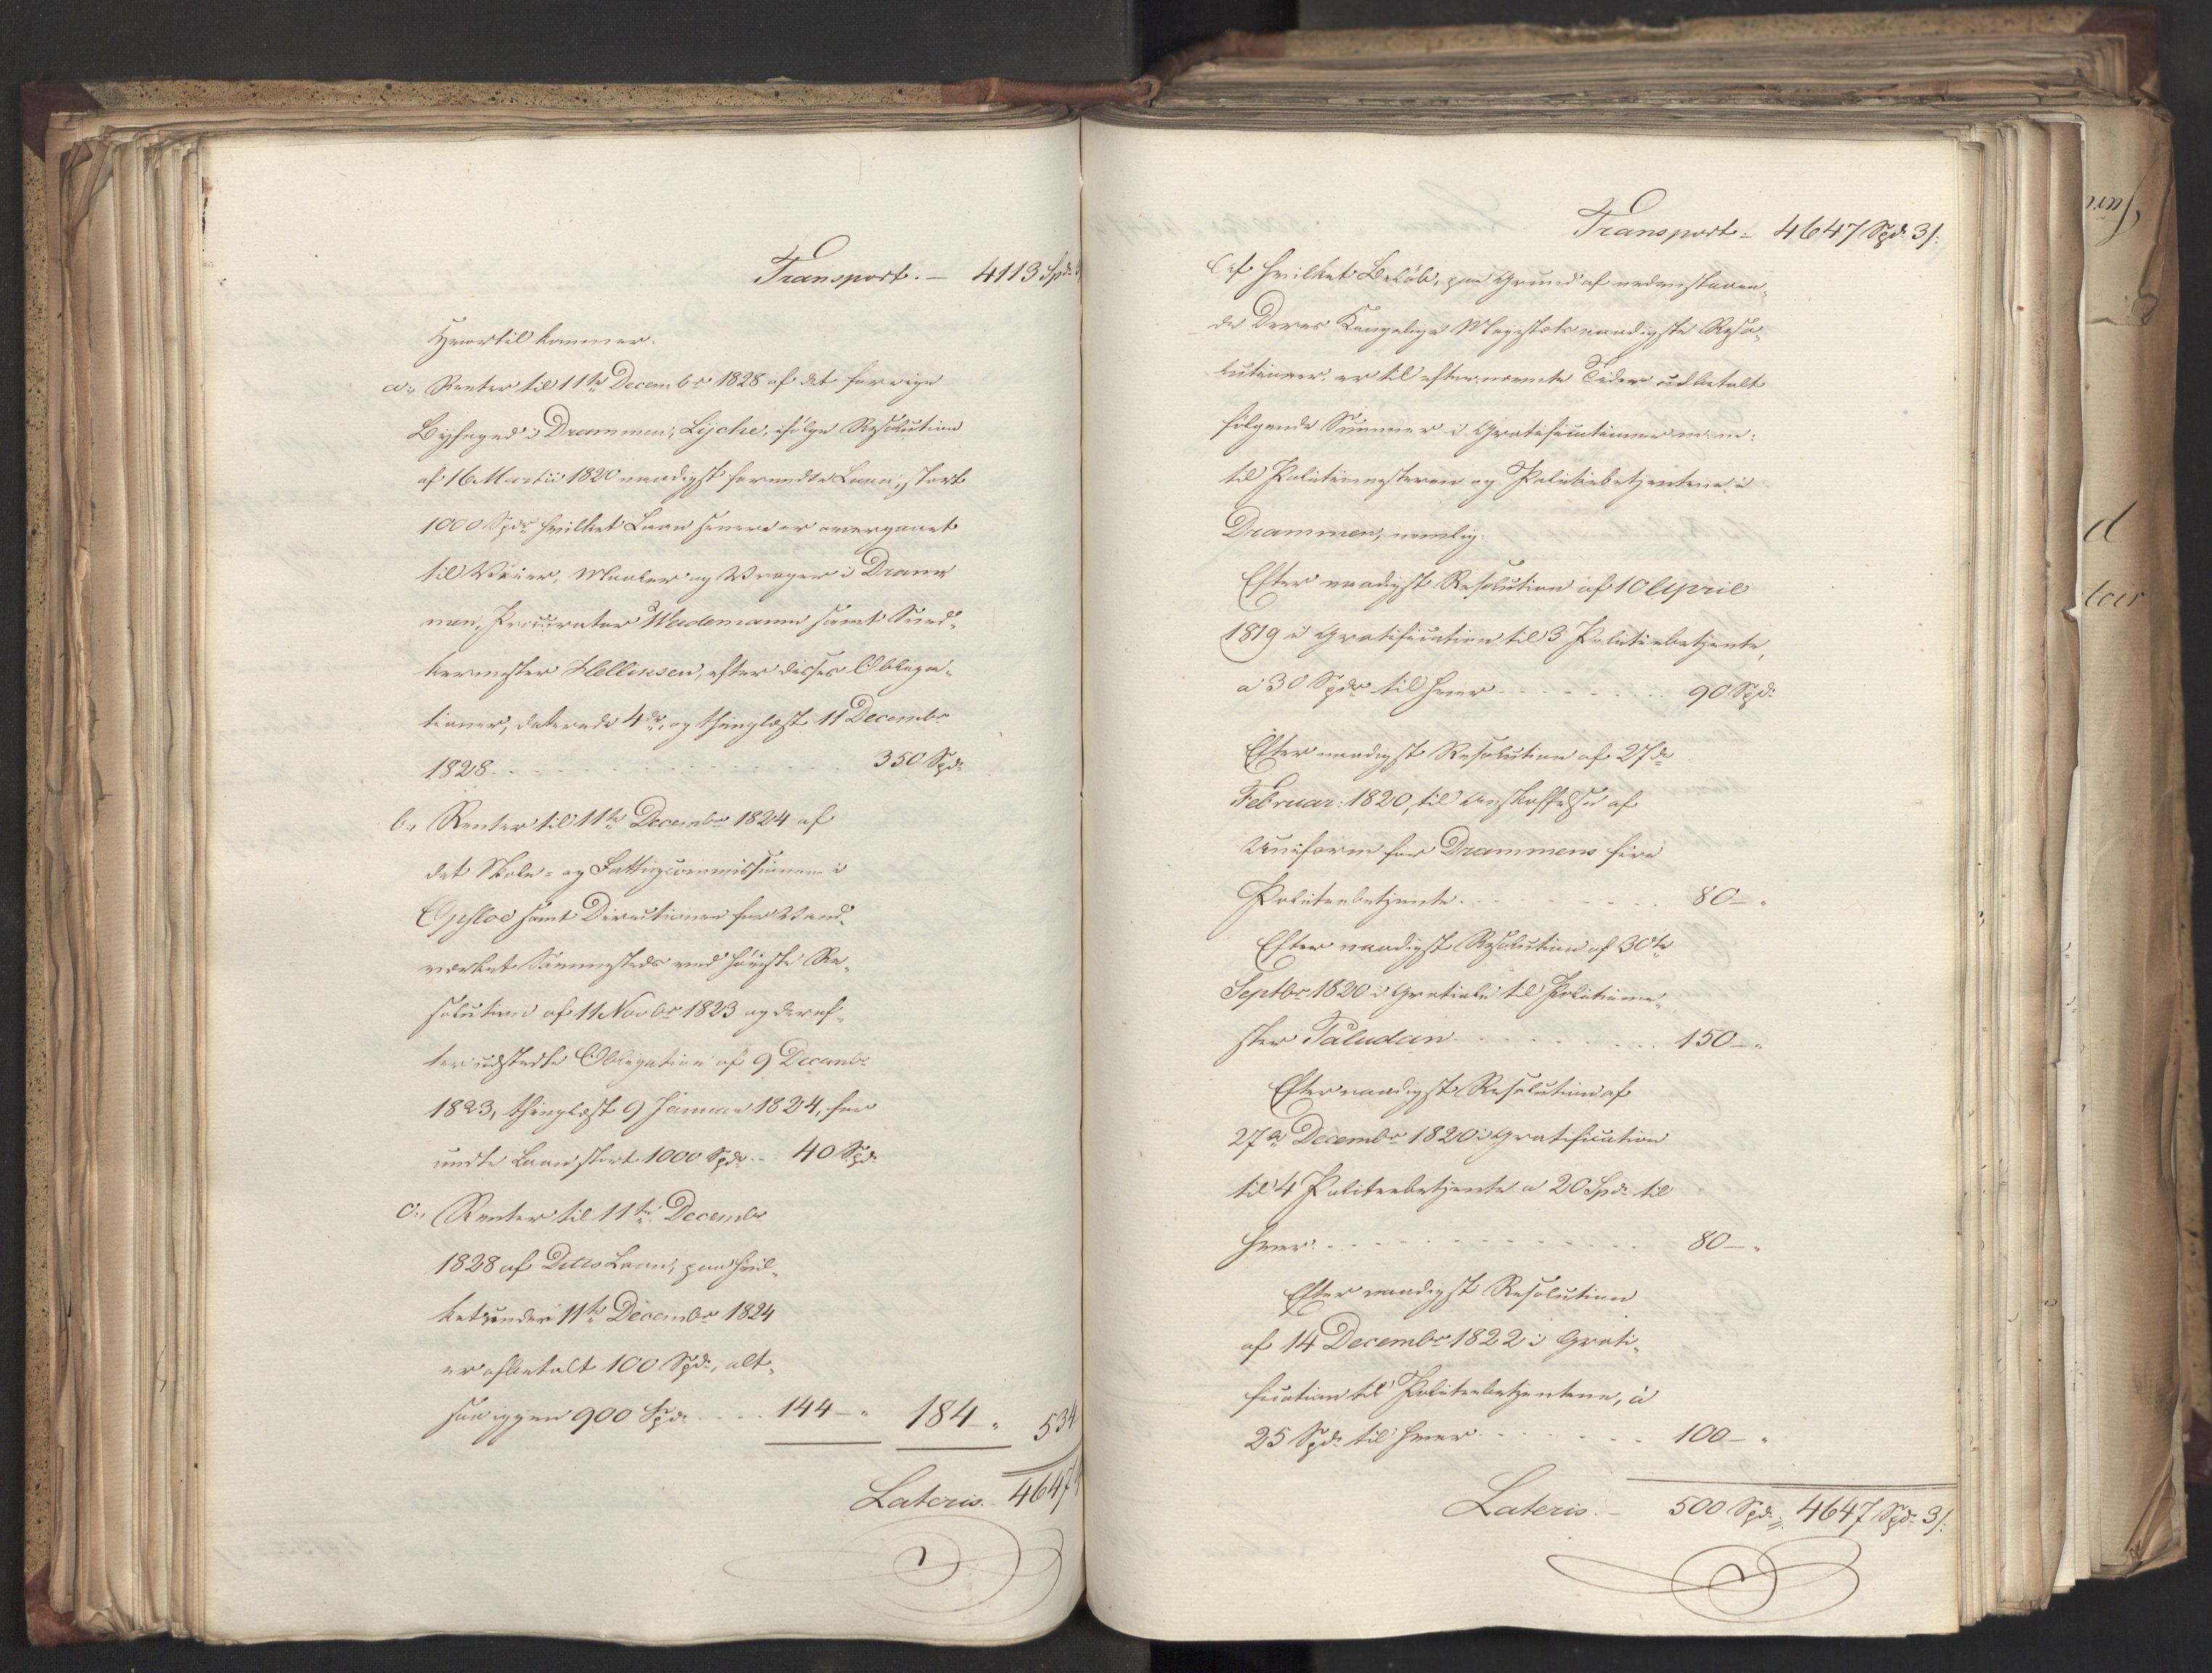 Transport. — 4113 Spd. 3
Hvortil kommer:
a., Renter til 11te Decembr 1828 af det forrige
Byfoged i Drammen, Lyche, ifølge Resolution
af 16 Martii 1820 naadigst forundte Laan, stort
1000 Spdr. hvilket Laan senere er overgaaet
til Veier, Maaler og Vrager i Dram¬
men, Procurator Wademann samt Sned¬
kermester Helliksen, efter disses Obliga¬
tioner, daterede 4de, og thinglæst 11 Decembr
1828. 350 Spd.
b., Renter til 11te Decembr 1824 af
det Skole- og Fattigcommissionen i
Opsloe samt Directionen for Vand¬
værket sammesteds ved høieste Re¬
solution af 11 Novbr 1823 og deref¬
ter udstedte Obligation af 9 Decembr
1823, thinglæst 9 Januar 1824, for
undte Laan stort 1000 Spdr. 40 Spd.
c., Renter til 11te Decembr
1828 af Ditto Laan, paa hvil¬
ket under 11te Decembr 1824
er afbetalt 100 Spd., alt¬
saa igjen 900 Spd. 144 — „ 184 „ 534
Lateris. 4647
Transport — 4647 Spd. 3 /:
Af hvilket Beløb, paa Grund af nedenstaaen¬
de Deres Kongelige Majestæts naadigste Reso¬
lutioner, er til efternævnte Tider udbetalt
følgende Summer i Gratificationer
til Politiemesteren og Politiebetjentene i
Drammen, nemlig:
Efter naadigst Resolution af 10 April
1819 i Gratification til 3 Politiebetjente,
a 30 Spdr til hver 90 Spd.
Efter naadigst Resolution af 27de
Februar 1820, til Anskaffelse af
Uniform for Drammens fire
Politiebetjente 80 — „
Efter naadigst Resolution af 30te
Septbr 1820 i Gratiale til Politieme¬
ster Paludan 150 — „
Efter naadigst Resolution af
27de Decembr 1820 i Gratification
til 4 Politiebetjente a 20 Spdr til
hver 80 — „
Efter naadigst Resolution
af 14 Decembr 1822 i Grati¬
fication til Politiebetjentene, à
25 Spd. til hver 100 — „
Lateris. — 500 Spd. „ 4647 Spd. 3 /: